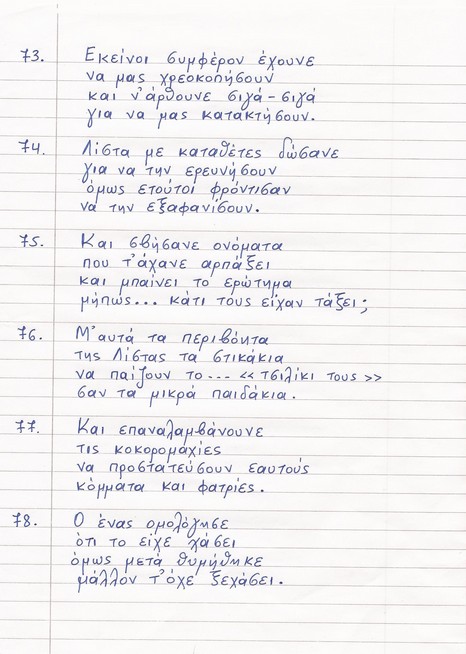 73. Εκείνοι συμφέρον έχουνε
να μας χρεοκοπήσουν
και ν'άρθουνε σιγά-σιγά
για να μας κατακτήσουν.
74. Λίστα με καταθέτες δώσανε
για να την ερευνήσουν
όμως ετούτοι φρόντισαν
να την εξαφανίσουν.
75. Και σβήσανε ονόματα
που τ'άχανε αρπάξει
και μπαίνει το ερώτημα
μήπως... κάτι τους είχαν τάξει;
76. Μ'αυτά τα περιβόητα
της Λίστας τα στικάκια
να παίζουν το... «τσιλίκι τους»
σαν τα μικρά παιδάκια.
77. Και επαναλαμβάνουνε
τις κοκορομαχίες
να προστατεύσουν εαυτούς
κόμματα και φατρίες.
78. Ο ένας ομολόγησε
ότι το είχε χάσει
όμως μετά θυμήθηκε
μάλλον τ'όχε ξεχάσει.